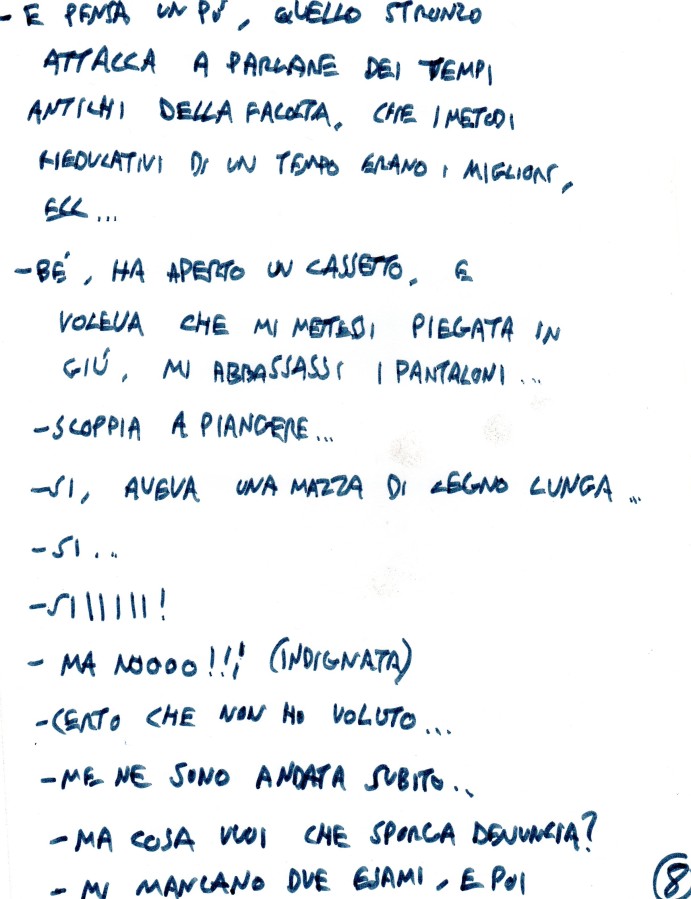 - E PENSA UN PO', QUELLO STRONZO
ATTACCA A PARLARE DEI TEMPI
ANTICHI DELLA FACOLTA, CHE I METODI
RIEDUCATIVI DI UN TEMPO ERANO I MIGLIORI,
ECC...
- BE', HA APERTO UN CASSETTO, E
VOLEVA CHE MI METESSI PIEGATA IN
GIÚ, MI ABBASSASSI I PANTALONI...
- SCOPPIA A PIANGERE...
- SI, AVEVA UNA MAZZA DI LEGNO LUNGA...
- SI...
- SIIIIIII!
- MA NOOOO!!! (INDIGNATA)
- CERTO CHE NON HO VOLUTO...
- ME NE SONO ANDATA SUBITO..
- MA COSA VUOI CHE SPORGA DENUNCIA?
- MI MANCANO DUE ESAMI, E POI
8